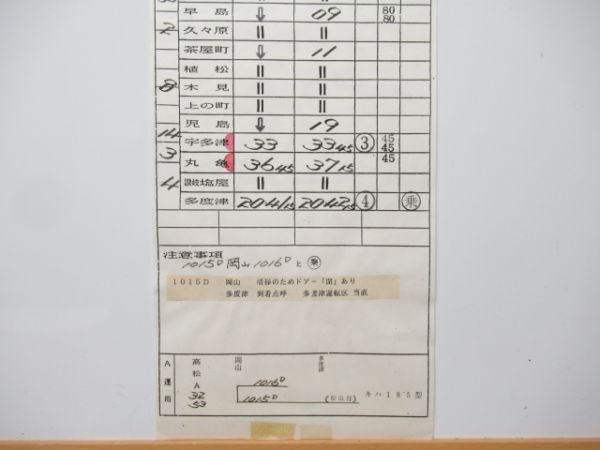 早島 ⇩ 09 80 80
2 久々原 || ||
茶屋町 ⇩ 11
植松 || ||
8 木見 || ||
上の町 || ||
児島 ⇩ 19
14 宇多津 33 33 45 ③ 45 45
3 丸亀 36 45 37 15 45
4 讃岐塩屋 || ||
多度津 2041 15 2042 15 ④ 乗
注意事項
1015D 岡山 1016D と 乗
1015D 岡山 清掃のためドアー「閉」あり
多度津 到着点呼 多度津運転区 当直
A運用 高松A 32 53 岡山 多度津
1016D
1015D キハ185型